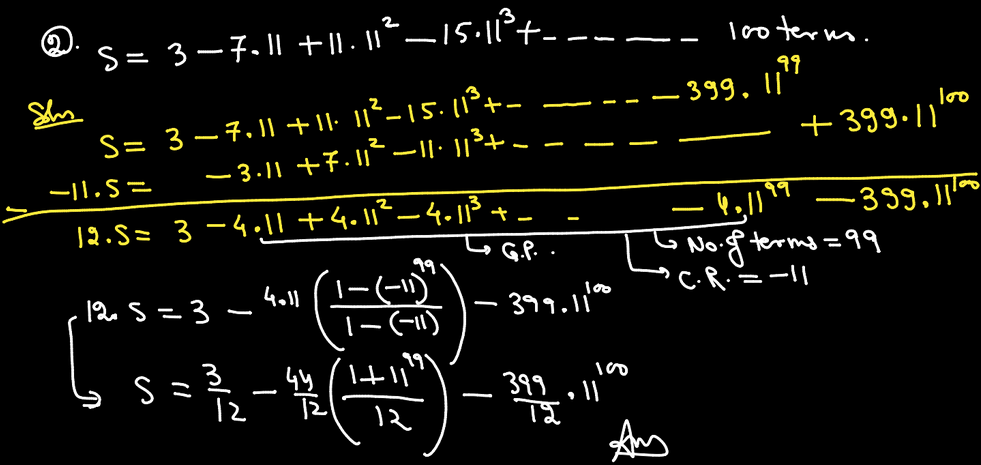 ②. S = 3 - 7.11 + 11.11² - 15.11³ + - - - - - - 100 terms.
Soln
S = 3 - 7.11 + 11.11² - 15.11³ + - - - - - 399.11⁹⁹
-11.S = - 3.11 + 7.11² - 11.11³ + - - - - - - + 399.11¹⁰⁰
12.S = 3 - 4.11 + 4.11² - 4.11³ + - - - 4.11⁹⁹ - 399.11¹⁰⁰
→ G.P..
→ No. of terms = 99
→ C.R. = -11
12. S = 3 - 4.11 ( (1 - (-11)⁹⁹) / (1 - (-11)) ) - 399.11¹⁰⁰
→ S = 3/12 - 44/12 ( (1 + 11⁹⁹) / 12 ) - 399/12 . 11¹⁰⁰
Ans